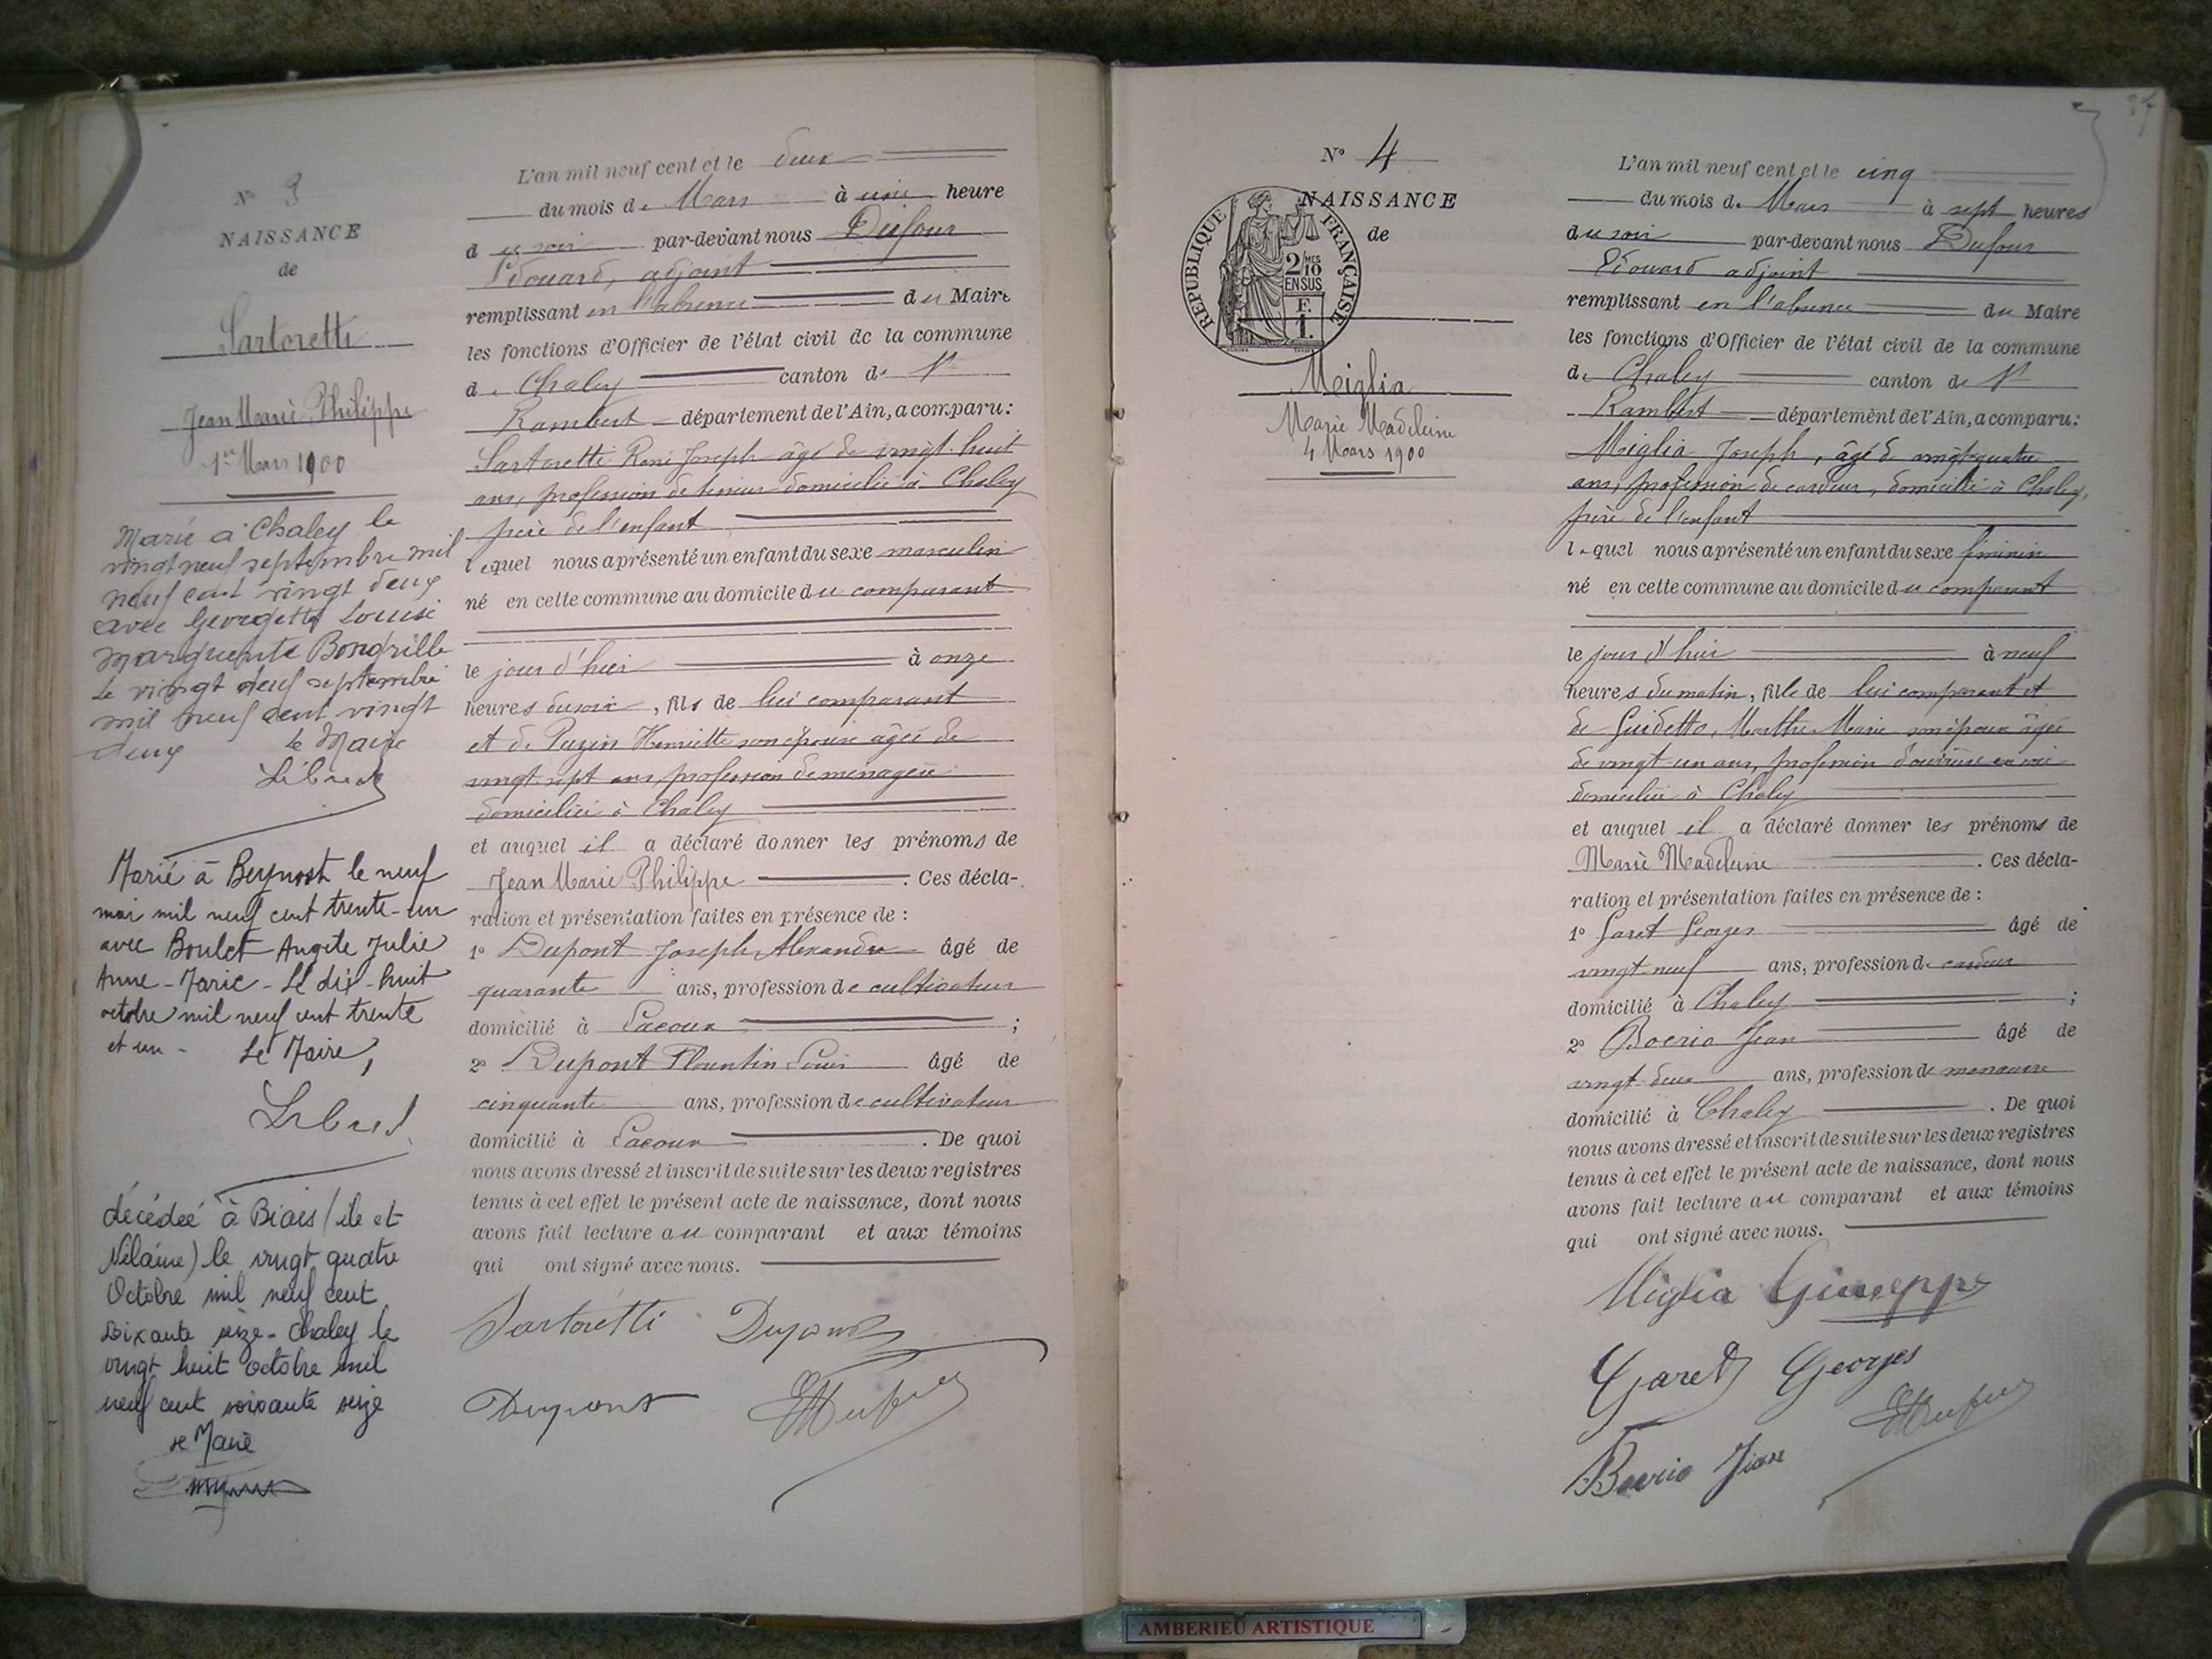 N° 3
NAISSANCE
de
Sartoretti
Jean Marie Philippe
1er Mars 1900
Marié à Chaley le
vingt neuf septembre mil
neuf cent vingt deux
avec Georgette Louise
Marguerite Bongrille
Le vingt neuf septembre
mil neuf cent vingt
deux le Maire
Marié à Beynost le neuf
mai mil neuf cent trente-un
avec Boulet Angèle Julie
Anne-Marie - Le dix-huit
octobre mil neuf cent trente
et un - Le Maire,
décédeé à (ile et
Vilaine) le vingt quatre
Octobre mil neuf cent
soixante seize - Chaley le
vingt huit octobre mil
neuf cent soixante seize
le Maire
L'an mil neuf cent et le deux
du mois de Mars à une heure
du soir par-devant nous Dufour
Edouard, adjoint
remplissant en l'absence du Maire
les fonctions d'Officier de l'état civil de la commune
de Chaley canton de St
Rambert département de l'Ain, a comparu:
Sartoretti René Joseph âgé de vingt-huit
ans, profession de domicilié à Chaley
père de l'enfant
lequel nous a présenté un enfant du sexe masculin
né en cette commune au domicile du comparant
le jour d'hier à onze
heures du soir, fils de lui comparant
et de Puzin Henriette son épouse âgée de
vingt sept ans, profession de ménagère
domiciliée à Chaley
et auquel il a déclaré donner les prénoms de
Jean Marie Philippe . Ces décla-
ration et présentation faites en présence de :
1° Dupont Joseph Alexandre âgé de
quarante ans, profession de cultivateur
domicilié à Lacoux ;
2° Dupont Florentin Louis âgé de
cinquante ans, profession de cultivateur
domicilié à Lacoux . De quoi
nous avons dressé et inscrit de suite sur les deux registres
tenus à cet effet le présent acte de naissance, dont nous
avons fait lecture au comparant et aux témoins
qui ont signé avec nous.
Sartoretti Dupont
Dupont EDufour
N° 4
NAISSANCE
de
RÉPUBLIQUE FRANÇAISE
2/10 MES
EN SUS
F.
1.
Miglia
Marie Madeleine
4 Mars 1900
L'an mil neuf cent et le cinq
du mois de Mars à sept heures
du soir par-devant nous Dufour
Edouard adjoint
remplissant en l'absence du Maire
les fonctions d'Officier de l'état civil de la commune
de Chaley canton de St
Rambert département de l'Ain, a comparu:
Miglia Joseph, âgé de vingt-quatre
ans, profession de cardeur, domicilié à Chaley,
père de l'enfant
lequel nous a présenté un enfant du sexe féminin
né en cette commune au domicile du comparant
le jour d'hier à neuf
heures du matin, fille de lui comparant et
de Guidetto, Marthe Marie son épouse âgée
de vingt-un ans, profession d'ouvrière en soie
domiciliée à Chaley
et auquel il a déclaré donner les prénoms de
Marie Madeleine . Ces décla-
ration et présentation faites en présence de :
1° Garet Georges âgé de
vingt-neuf ans, profession de cardeur
domicilié à Chaley ;
2° Boerio Jean âgé de
vingt-deux ans, profession de manœuvre
domicilié à Chaley . De quoi
nous avons dressé et inscrit de suite sur les deux registres
tenus à cet effet le présent acte de naissance, dont nous
avons fait lecture au comparant et aux témoins
qui ont signé avec nous.
Miglia Giuseppe
Garet Georges
EDufour
Boerio Jean
AMBERIEU ARTISTIQUE